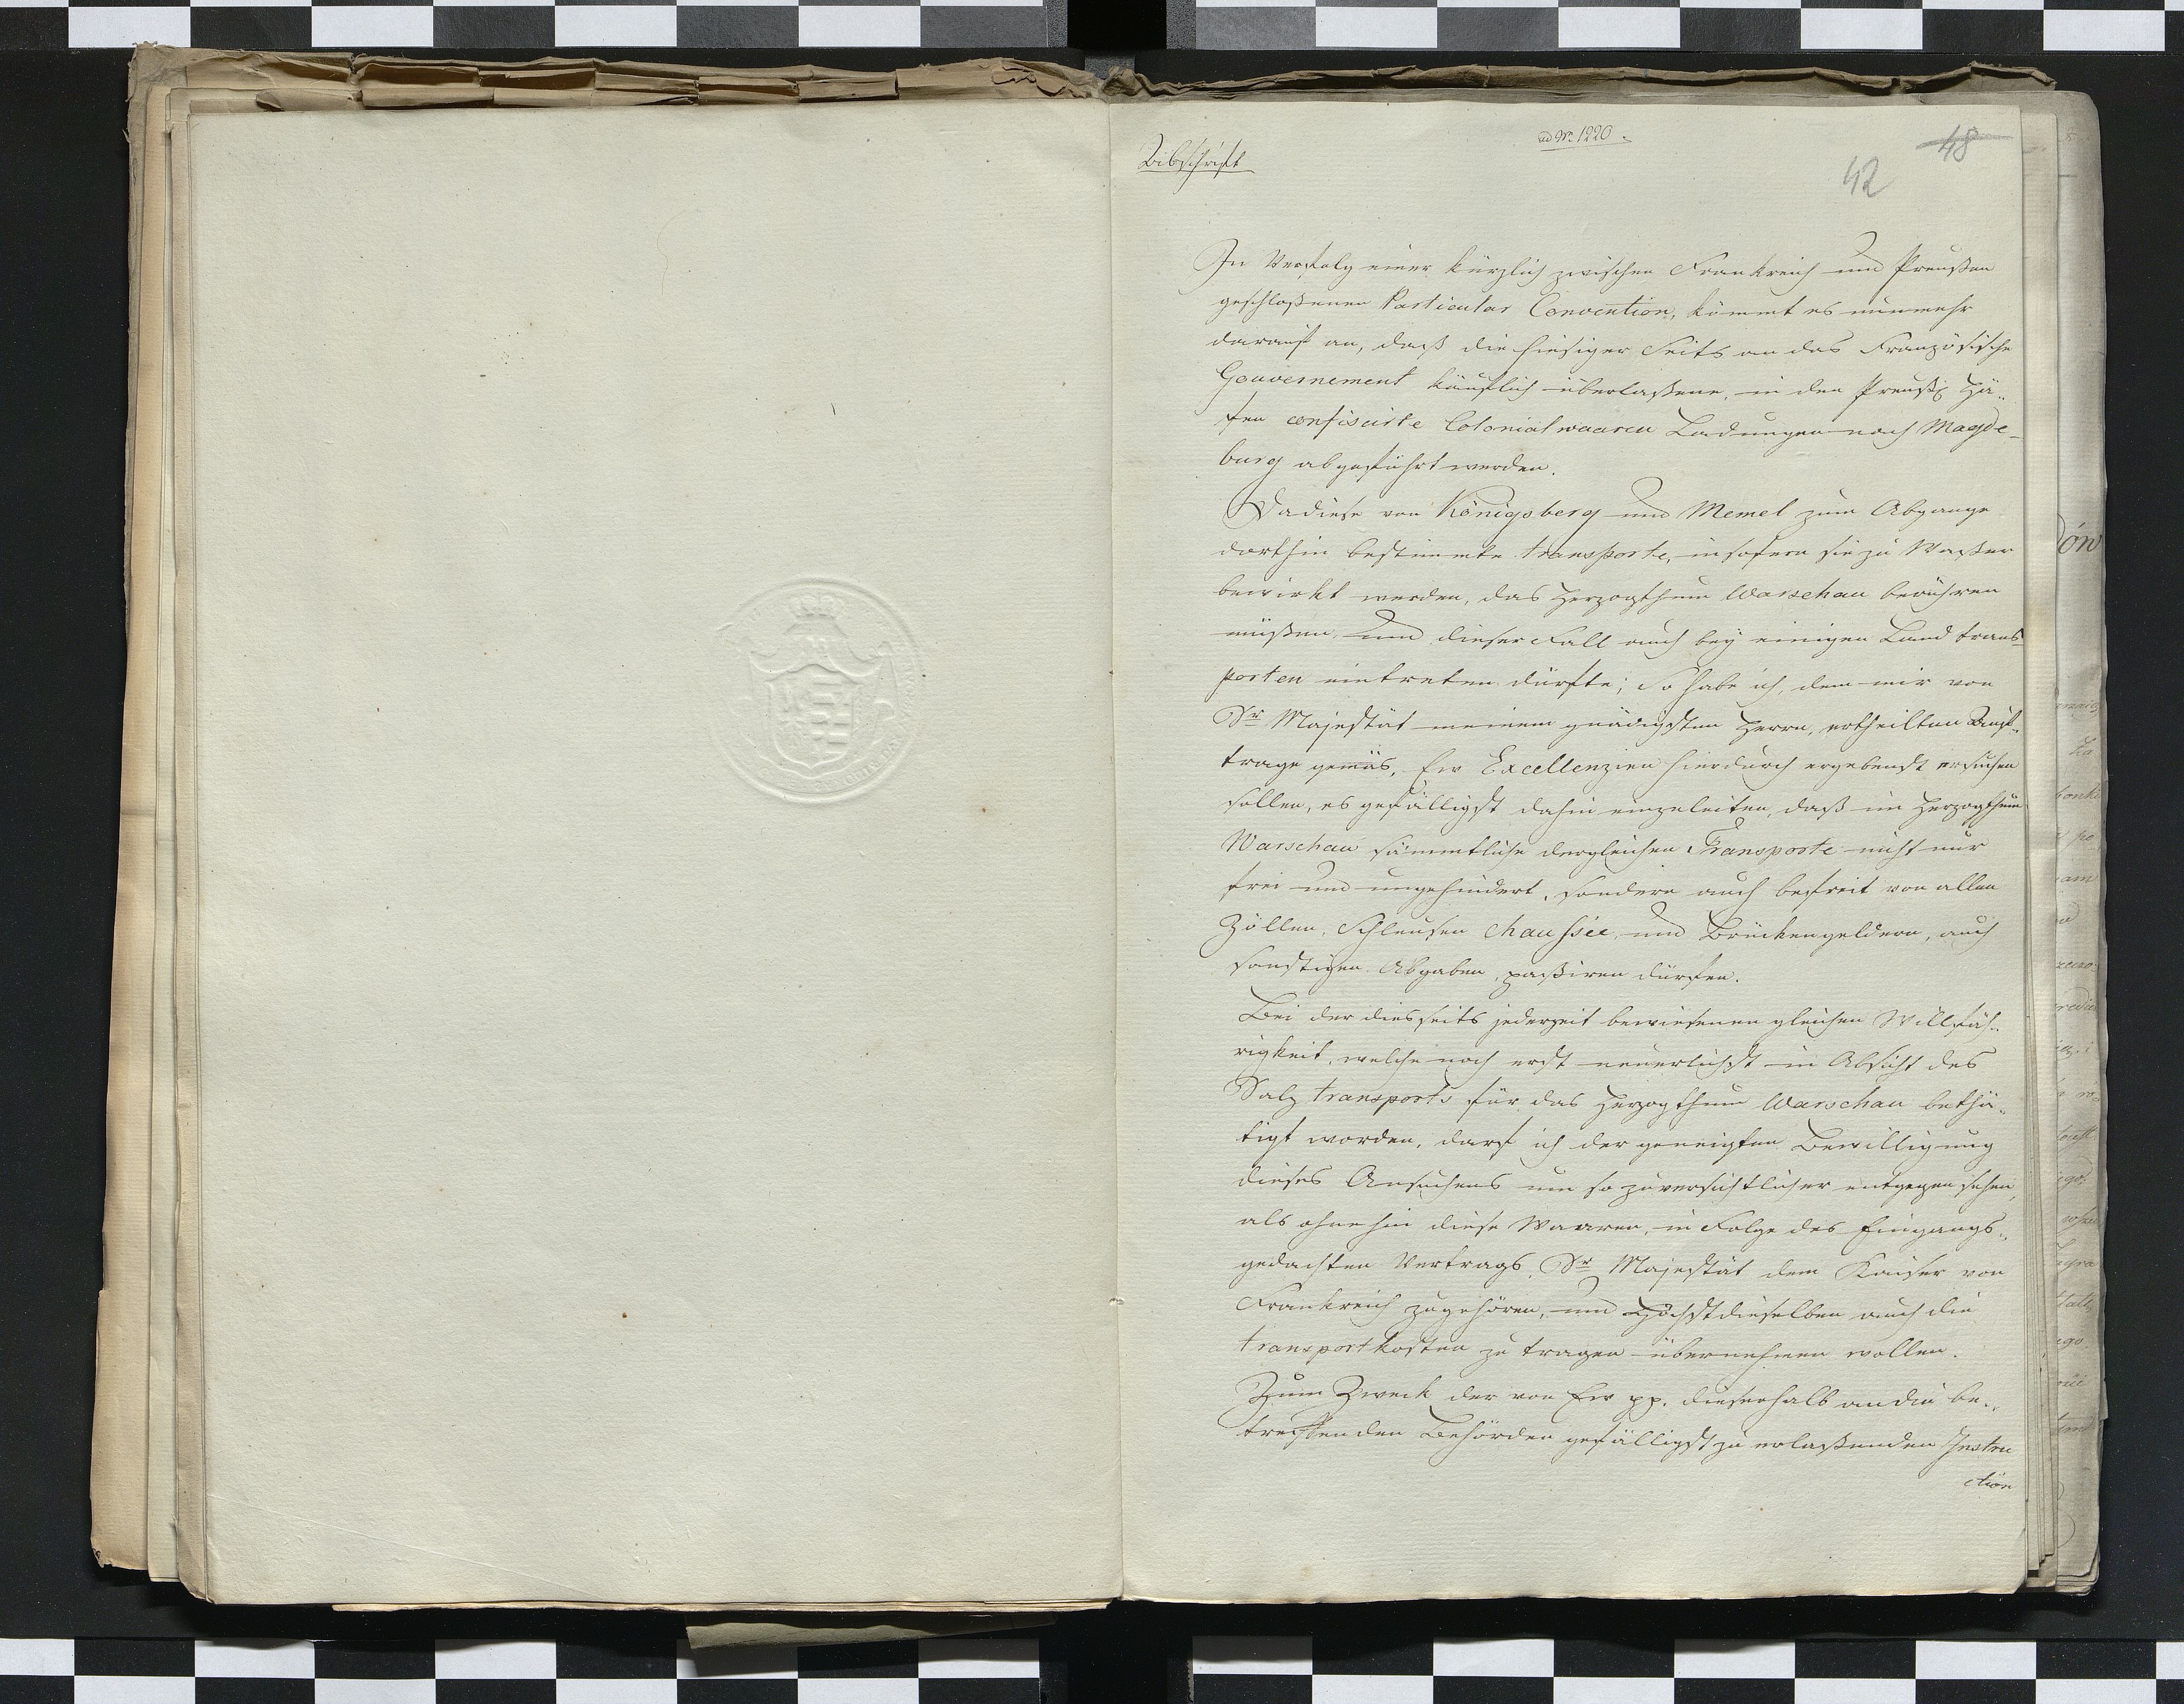 ad No 1220.
Abschrift
48
42
In Verfolg einer kürzlich zwischen Frankreich und Preußen
geschloßenen Particular Convention, kömmt es nunmehr
darauf an, daß die hiesiger Seits an das Französische
Gouvernement käuflich überlaßene, in den Preuß. Hä-
fen confiscirte Colonialwaaren Ladungen nach Magde-
burg abgeführt werden.
Da diese von Königsberg und Memel zum Abgange
dorthin bestimmte transporte, in sofern sie zu Waßer
bewirkt werden, das Herzogthum Warschau berühren
müßen, und dieser Fall auch bey einigen Land trans-
porten eintreten dürfte; So habe ich, dem mir von
Sr Majestät meinem gnädigsten Herrn, ertheilten Auf-
trage gemäs, Ew Excellenzien hierdurch ergebenst ersuchen
sollen, es gefälligst dahin einzuleiten, daß im Herzogthum
Warschau sämmtliche dergleichen Transporte nicht nur
frei und ungehindert, sondern auch befreit von allen
Zöllen, Schleusen chaussée, und Brückengeldern, auch
sonstigen Abgaben, paßiren dürfen.
Bei der diesseits jederzeit bewiesenen gleichen Willfäh-
rigkeit, welche noch erst neuerlichst in Absicht des
Salz transports für das Herzogthum Warschau bethä-
tigt worden, darf ich der geneigten Bewilligung
dieses Ansuchens um so zuversichtlicher entgegen sehen,
als ohnehin diese Waaren, in Folge des Eingangs-
gedachten Vertrags, Sr Majestät dem Kaiser von
Frankreich zugehören, und Höchstdieselben auch die
transport kosten zu tragen übernehmen wollen.
Zum Zweck der von Ew pp. dieserhalb an die be-
treffenden Behörden gefälligst zu erlaßenden Instru
ction